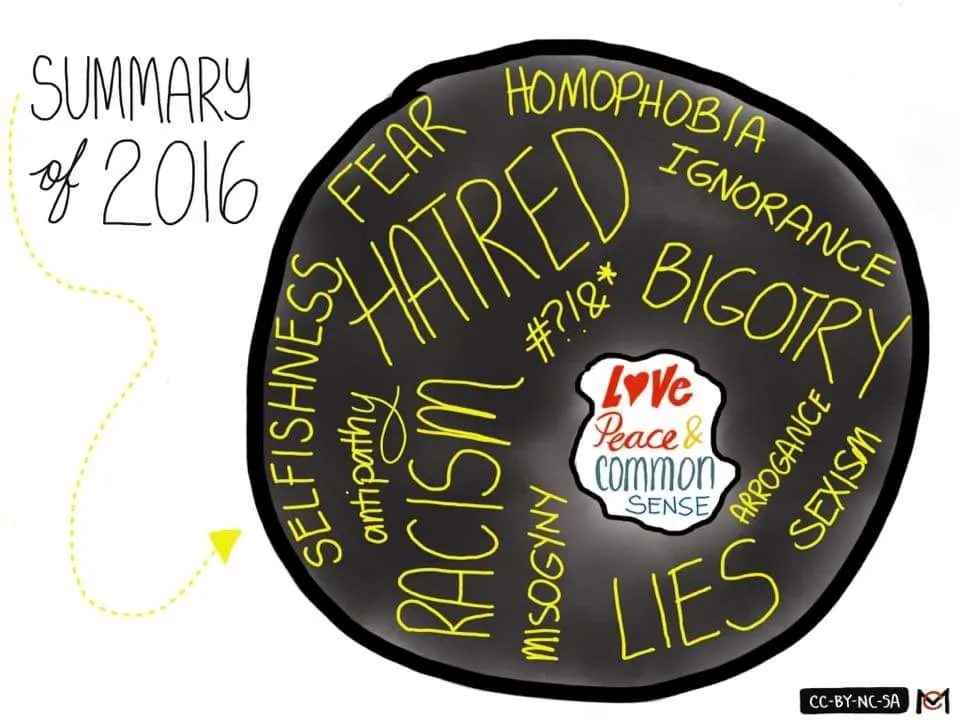 SUMMARY
of 2016
HOMOPHOBIA
FEAR
IGNORANCE
HATRED
BIGOTRY
#?!&*
SELFISHNESS
LOVE
Peace &
COMMON
SENSE
antipathy
RACISM
ARROGANCE
SEXISM
MISOGYNY
LIES
CC-BY-NC-SA